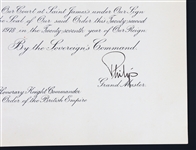 Our Court at Saint James's under Our Sign
the Seal of Our said Order this Twenty
in the Twenty-seventh year of Our Reign
By the Sovereign's Command
Philip
Grand Master
Honorary Knight Commander
Order of the British Empire